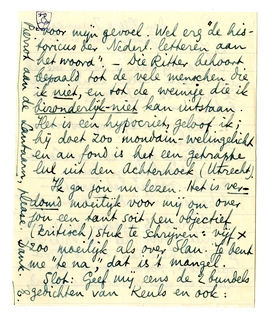 voor mijn gevoel. Wel erg "de his-
toricus der Nederl. letteren aan
het woord". – Die Ritter behoort
bepaald tot de vele menschen die
ik niet, en tot de weinige die ik
bizonderlijk-niet kan uitstaan.
Het is een hypocriet, geloof ik;
hij doet zoo mondain-welingelicht
en au fond is het een getrapte
lul uit den Achterhoek (Utrecht).
Ik ga jou nu lezen. Het is ver-
domd moeilijk voor mij om over
jou een tant soit peu objectief
(Britisch) stuk te schrijven: vijf x
zoo moeilijk als over Slau. Je bent
me "te na", dat is 't mangel.
Slot: Geef mij eens de 2 bundels
gedichten van Keuls en ook:
Pierrot aan de Lantaarn, please. Dank.